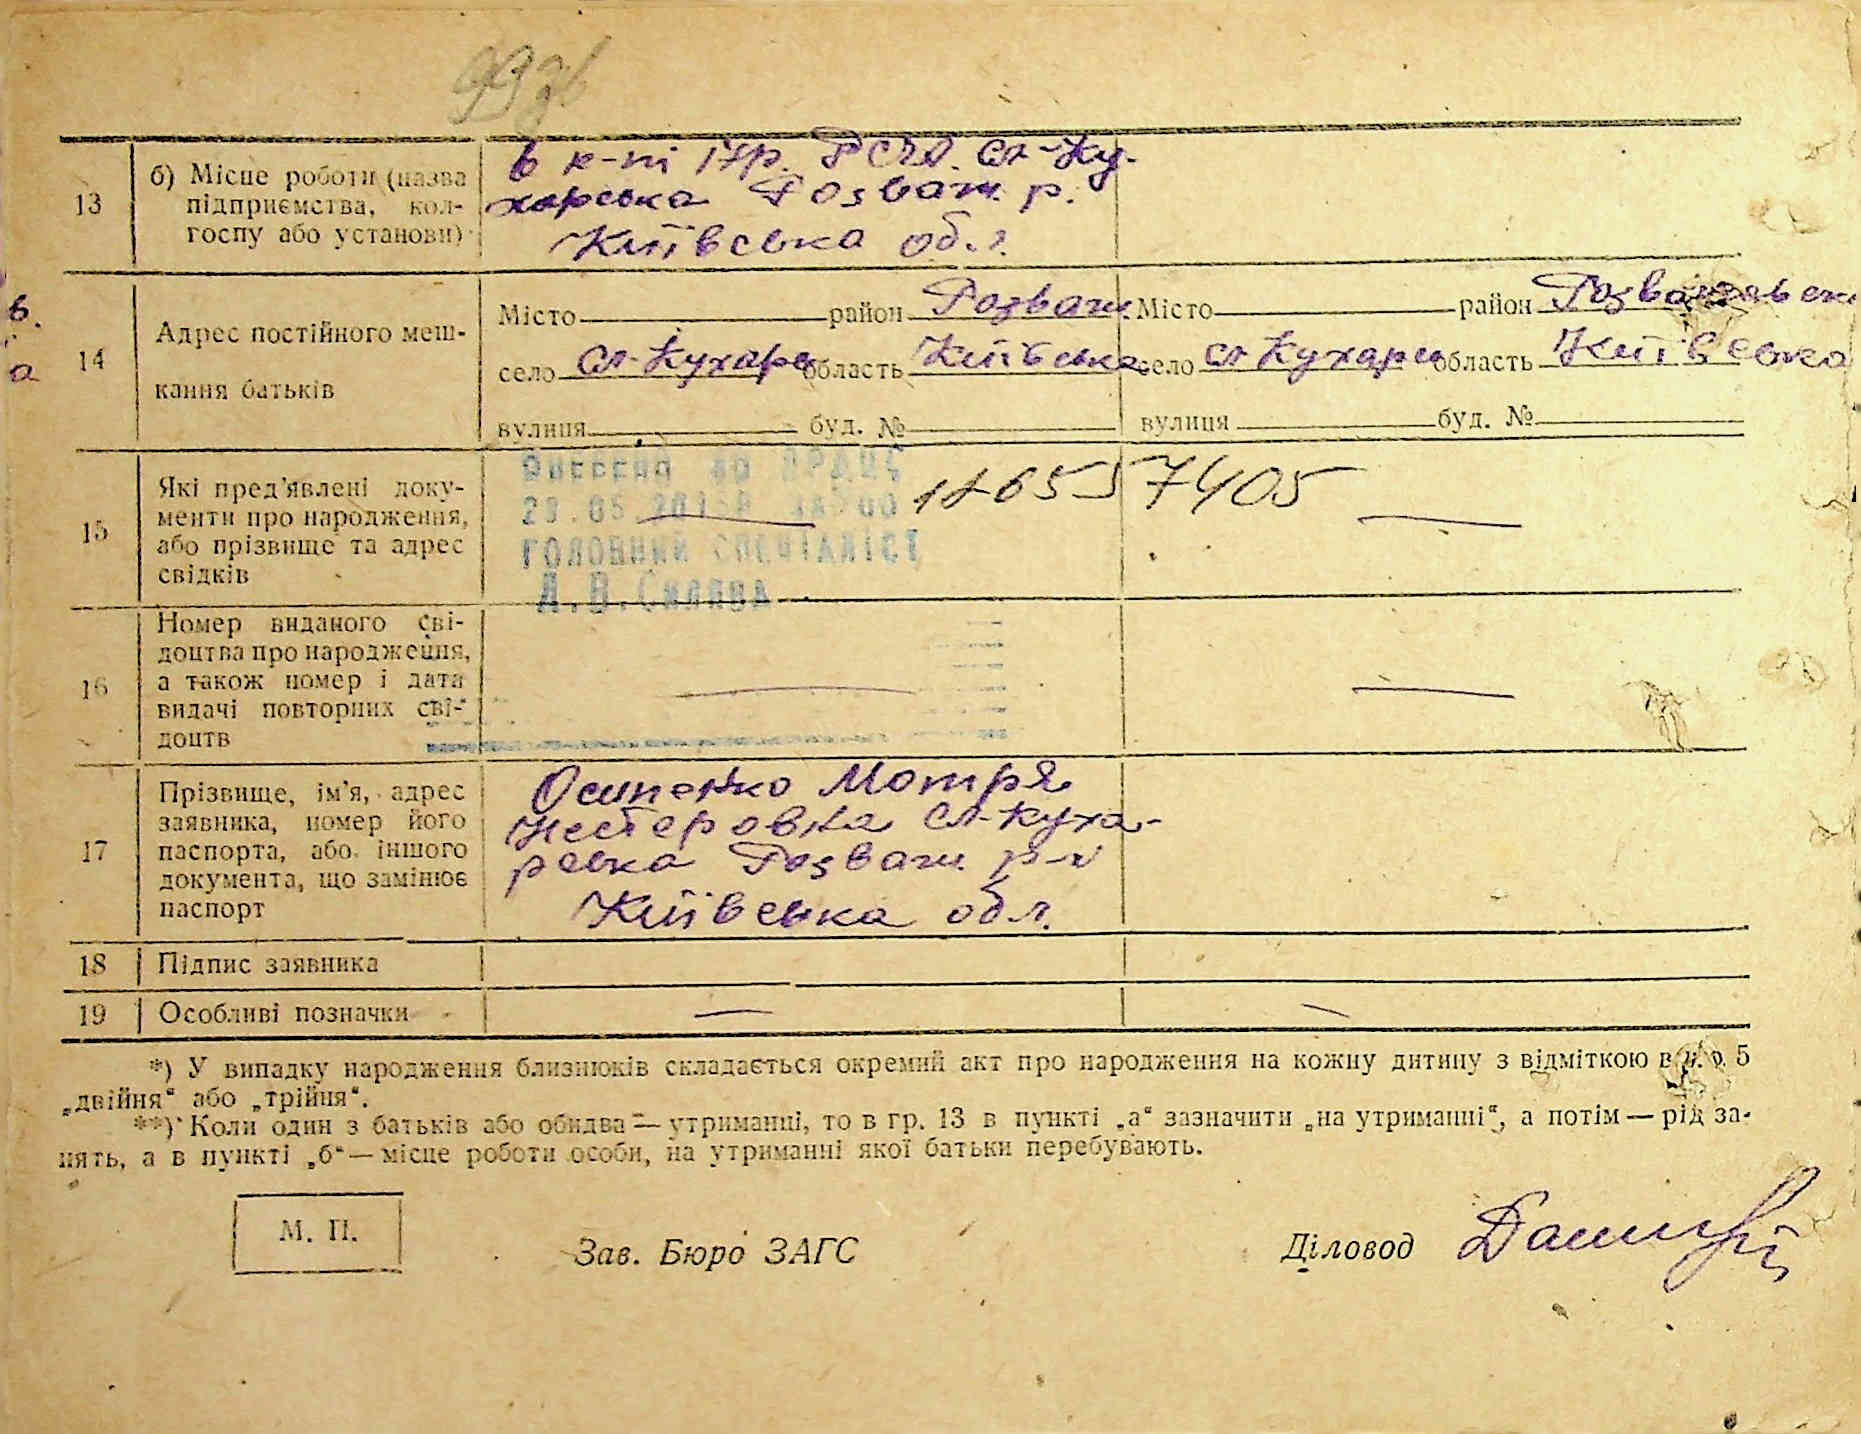 99 зв
13
б) Місце роботи (назва
підприємства, кол-
госпу або установи)
в к-пі Сл-Ку-
харська Розваж. р.
Київська обл.
в.
а
14
Адрес постійного меш-
кання батьків
Місто район Розваж
село Сл-Кухарс область Київська
вулиця буд. №
Місто район
село Сл Кухарс область Київська
вулиця буд. №
15
Які пред'явлені доку-
менти про народження,
або прізвище та адрес
свідків
Внесено до ДРАЦС
ГОЛОВНИЙ СПЕЦІАЛІСТ
18655 7405
16
Номер виданого сві-
доцтва про народження,
а також номер і дата
видачі повторних сві-
доцтв
17
Прізвище, ім'я, адрес
заявника, номер його
паспорта, або іншого
документа, що замінює
паспорт
Осипенко Мотря
Нестеровка Сл-Куха-
рська Розваж р-н
Київська обл.
18
Підпис заявника
19
Особливі позначки
— —
*) У випадку народження близнюків складається окремий акт про народження на кожну дитину з відміткою в п. 5
„двійня“ або „трійня“.
**) Коли один з батьків або обидва — утриманці, то в гр. 13 в пункті „а“ зазначити „на утриманні“, а потім — рід за-
нять, а в пункті „б“ — місце роботи особи, на утриманні якої батьки перебувають.
М. П.
Зав. Бюро ЗАГС
Діловод